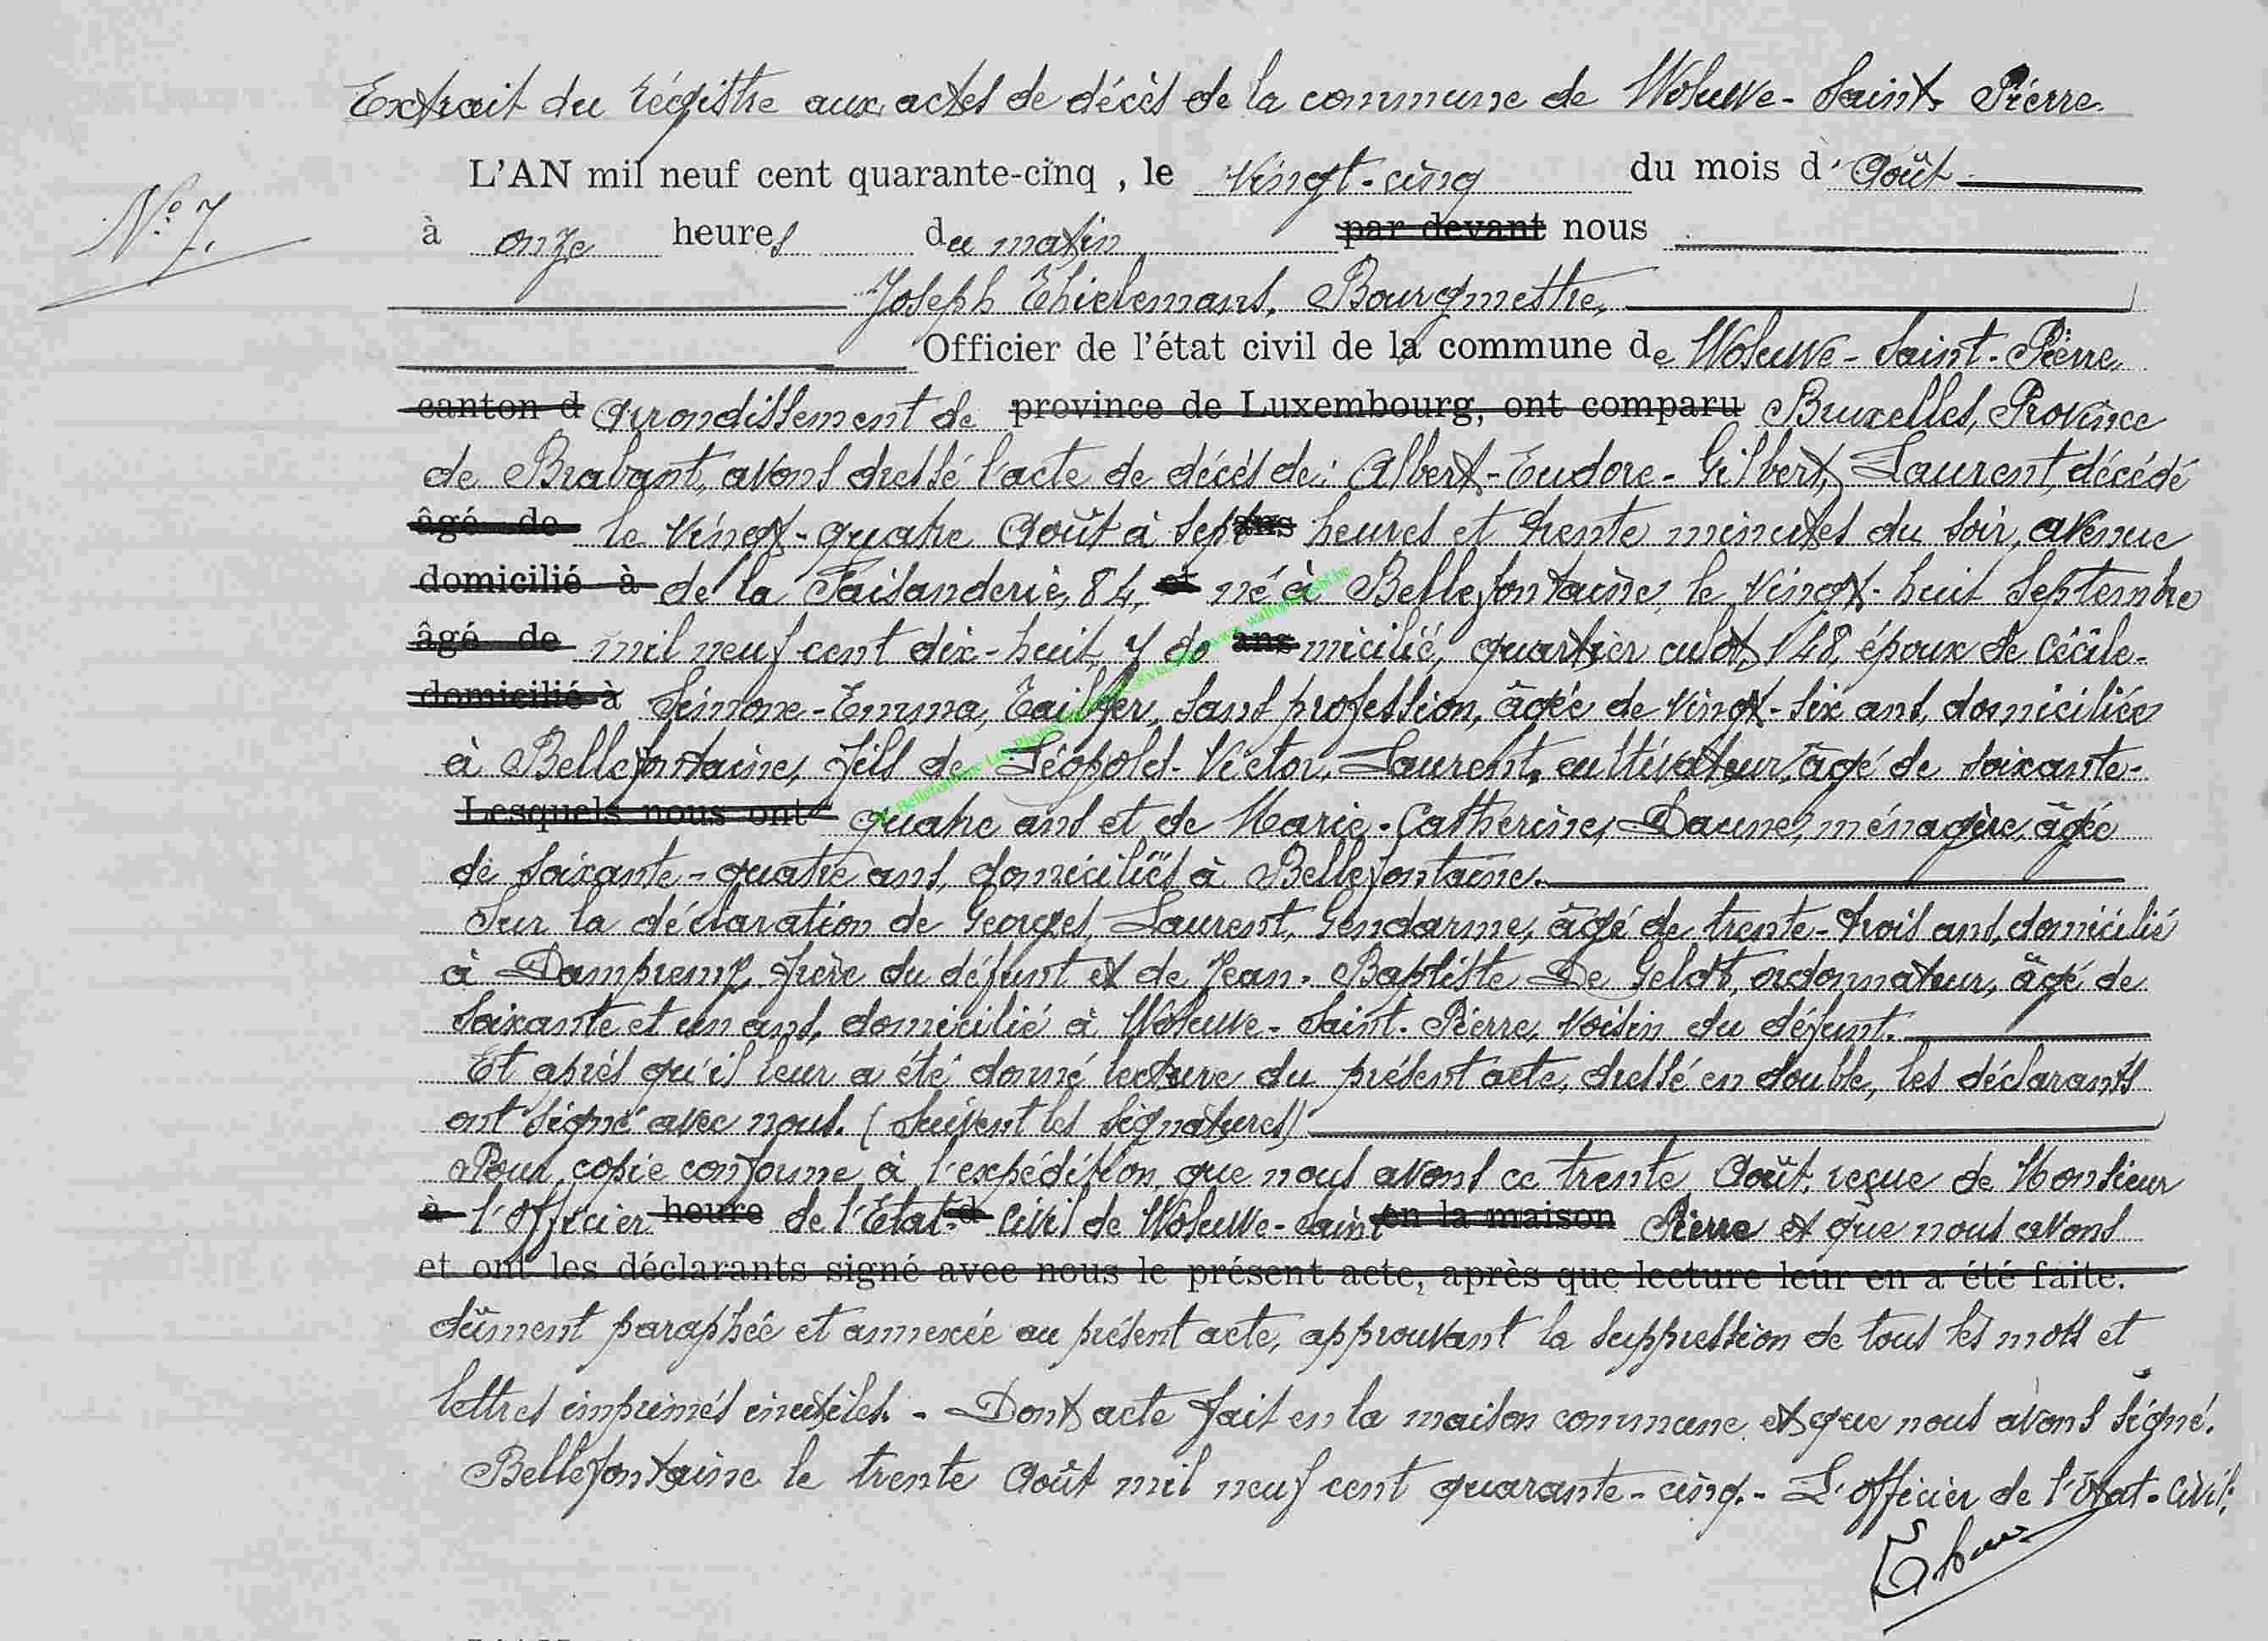 Extrait du régistre aux actes de décès de la commune de Woluwe-Saint-Pierre.
L'AN mil neuf cent quarante-cinq, le vingt-cinq du mois d'Août
N° 7.
à onze heures du matin par devant nous
Joseph Thielemans, Bourgmestre,
Officier de l'état civil de la commune de Woluwe-Saint-Pierre,
canton d arrondissement de province de Luxembourg, ont comparu Bruxelles, Province
de Brabant, avons dressé l'acte de décès de: Albert-Eudore-Gilbert, Laurent, décédé
âgé de le vingt-quatre Août à sept ans heures et trente minutes du soir, avenue
domicilié à de la Faisanderie, 84, et né à Bellefontaine, le vingt-huit Septembre
âgé de mil neuf cent dix-huit, y do ans micilié, quartier culot, 148, époux de Cécile-
domicilié à Simone-Emma, sans profession, âgée de vingt-six ans, domiciliée
à Bellefontaine, fils de Léopold-Victor, Laurent, cultivateur, âgé de soixante-
Lesquels nous ont quatre ans et de Marie-Catherine, Daune, ménagère, âgée
de soixante-quatre ans, domiciliés à Bellefontaine.
Sur la déclaration de Georges, Laurent, Gendarme, âgé de trente-trois ans, domicilié
à Dampremy, frère du défunt et de Jean-Baptiste De Geldt, ordonnateur, âgé de
soixante et un ans, domicilié à Woluwe-Saint-Pierre, voisin du défunt.
Et après qu'il leur a été donné lecture du présent acte, dressé en double, les déclarants
ont signé avec nous. (Suivent les signatures)
Pour copie conforme à l'expédition que nous avons ce trente Août, reçue de Monsieur
à l'officier heure de l'Etat-d civil de Woluwe-Saint en la maison Pierre et que nous avons
et ont les déclarants signé avec nous le présent acte, après que lecture leur en a été faite.
dûment paraphée et annexée au présent acte, approuvant la suppression de tous les mots et
lettres imprimés inutiles. - Dont acte fait en la maison commune et que nous avons signé.
Bellefontaine le trente Août mil neuf cent quarante-cinq. - L'officier de l'état-civil: